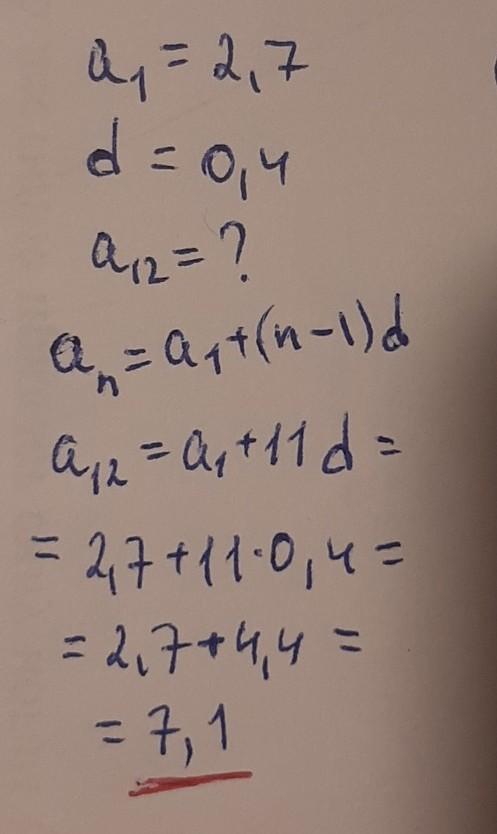 a₁ = 2,7
d = 0,4
a₁₂ = ?
aₙ = a₁+(n-1)d
a₁₂ = a₁+11d =
= 2,7+11·0,4 =
= 2,7+4,4 =
= 7,1